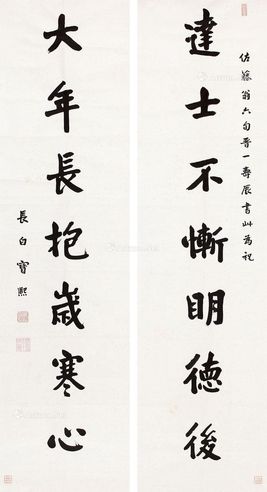 翁六旬晋一壽辰書此為祝
達士不慚明德後
大年長抱嵗寒心
長白寶熙